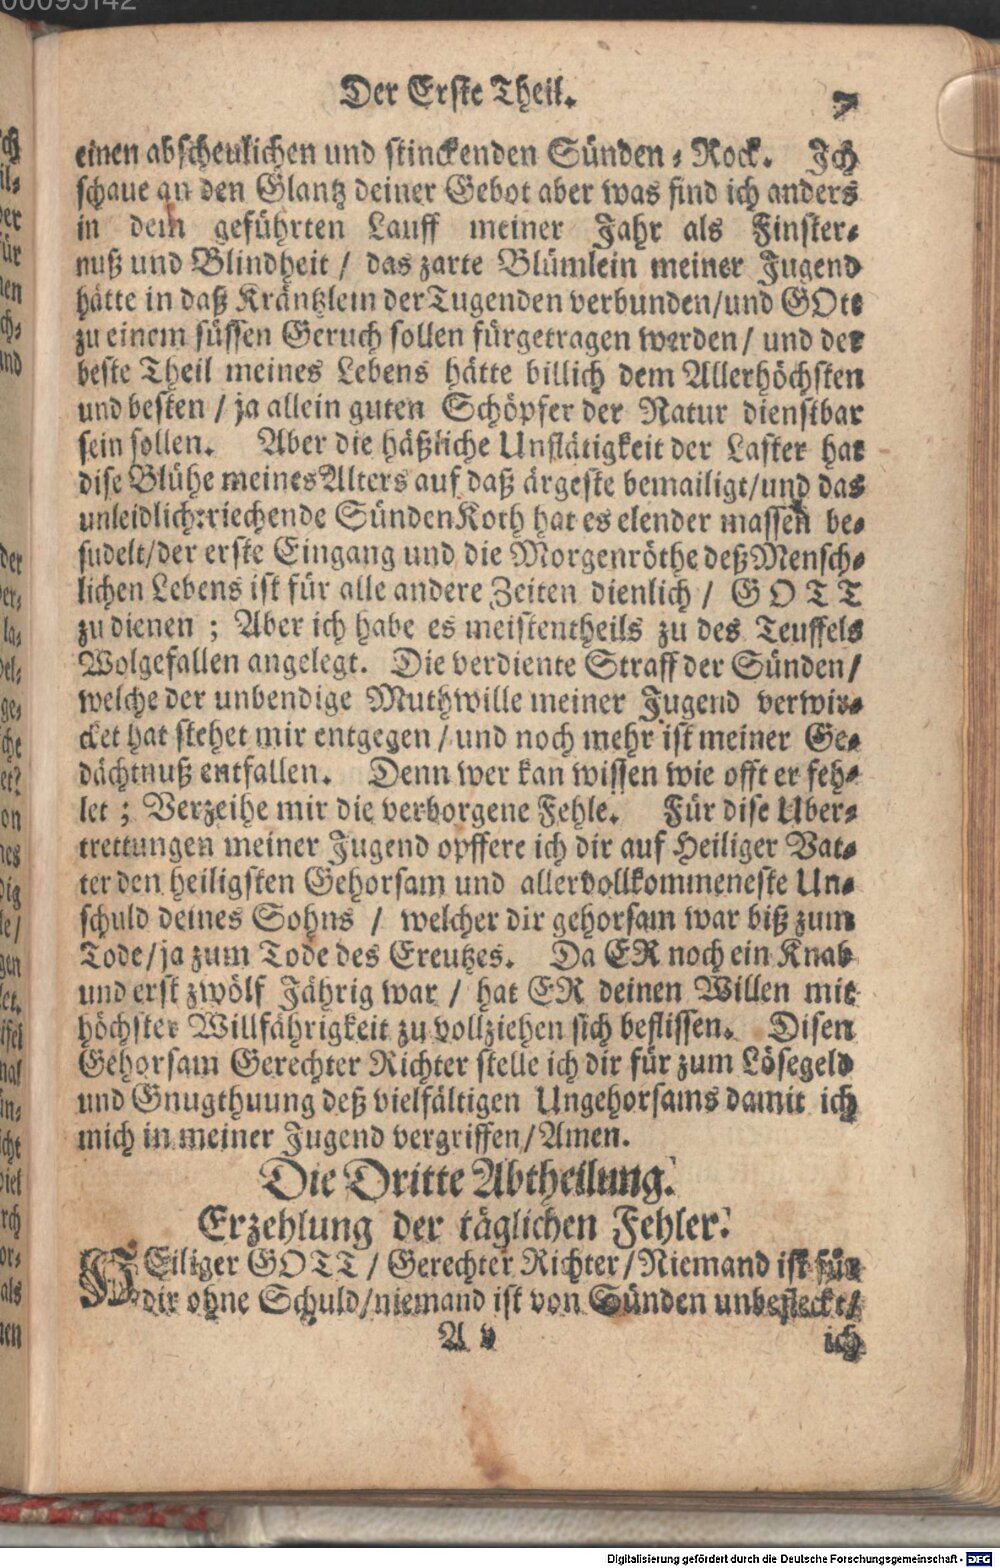 00095142
Der Erste Theil. 7
einen abscheulichen und stinckenden Sünden-Rock. Ich
schaue an den Glantz deiner Gebot aber was sind ich anders
in dem geführten Lauff meiner Jahr als Finster-
nuß und Blindheit / das zarte Blümlein meiner Jugend
hätte in daß Kräntzlein der Tugenden verbunden/und GOtt
zu einem süssen Geruch sollen fürgetragen werden / und der
beste Theil meines Lebens hätte billich dem Allerhöchsten
und besten / ja allein guten Schöpfer der Natur dienstbar
sein sollen. Aber die häßliche Unflätigkeit der Laster hat
dise Blühe meines Alters auf daß ärgeste bemailigt/und das
unleidlich-riechende SündenKoth hat es elender massen be-
sudelt/der erste Eingang und die Morgenröthe deß Mensch-
lichen Lebens ist für alle andere Zeiten dienlich / GOTT
zu dienen ; Aber ich habe es meistentheils zu des Teuffels
Wolgefallen angelegt. Die verdiente Straff der Sünden/
welche der unbendige Muthwille meiner Jugend verwir-
cket hat stehet mir entgegen / und noch mehr ist meiner Ge-
dächtnuß entfallen. Denn wer kan wissen wie offt er feh-
let ; Verzeihe mir die verborgene Fehle. Für dise Uber-
trettungen meiner Jugend opffere ich dir auf Heiliger Vat-
ter den heiligsten Gehorsam und allervollkommeneste Un-
schuld deines Sohns / welcher dir gehorsam war biß zum
Tode/ja zum Tode des Creutzes. Da ER noch ein Knab
und erst zwölf Jährig war / hat ER deinen Willen mit
höchster Willfährigkeit zu vollziehen sich beflissen. Disen
Gehorsam Gerechter Richter stelle ich dir für zum Lösegeld
und Gnugthuung deß vielfältigen Ungehorsams damit ich
mich in meiner Jugend vergriffen/Amen.
Die Dritte Abtheilung.
Erzehlung der täglichen Fehler.
HEiliger GOTT / Gerechter Richter/Niemand ist für
dir ohne Schuld/niemand ist von Sünden unbefleckt/
A v ich
Digitalisierung gefördert durch die Deutsche Forschungsgemeinschaft - DFG